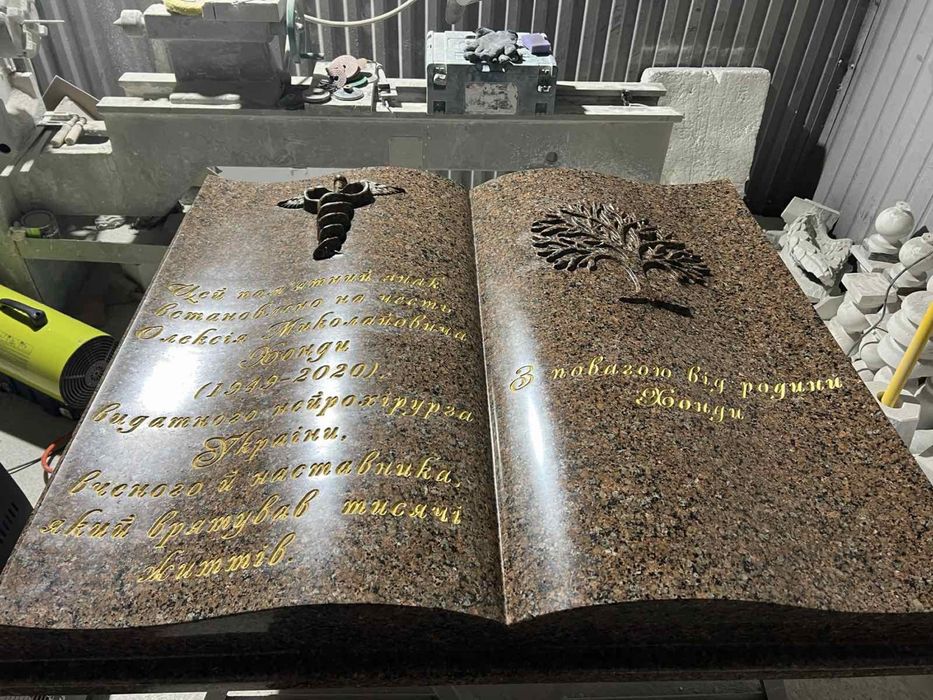 Цей пам'ятний знак
встановлено на честь
Олексія Миколайовича
Хонди
(1949-2020),
видатного нейрохірурга
України,
вченого й наставника,
який врятував тисячі
життів
З повагою від родини
Хонди